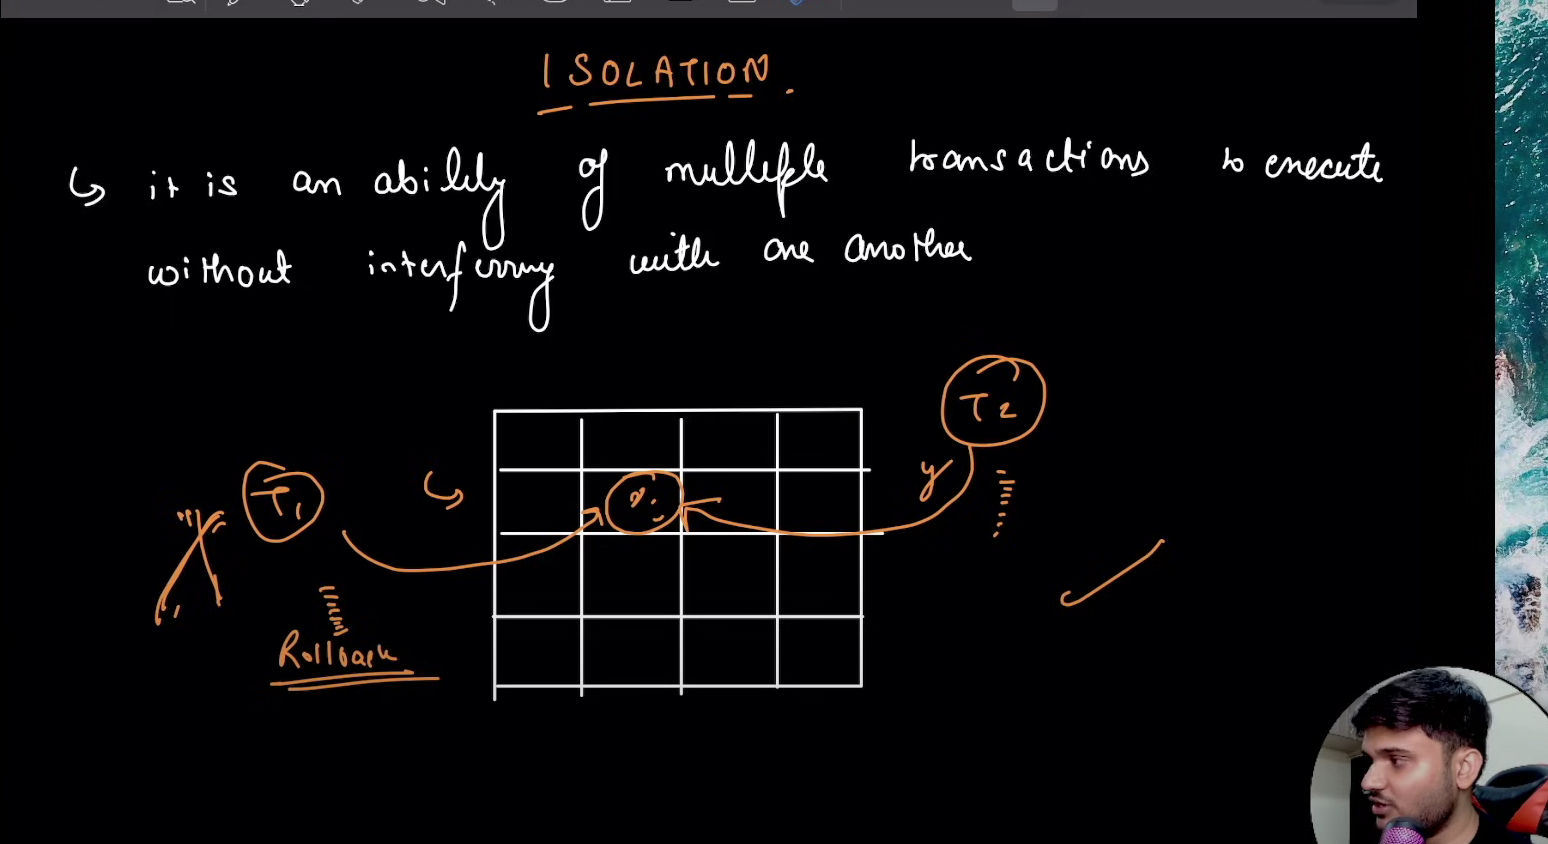 ISOLATION.
↳ it is an ability of multiple transactions to execute
without interferring with one another
T2
y
T1
x
Rollback